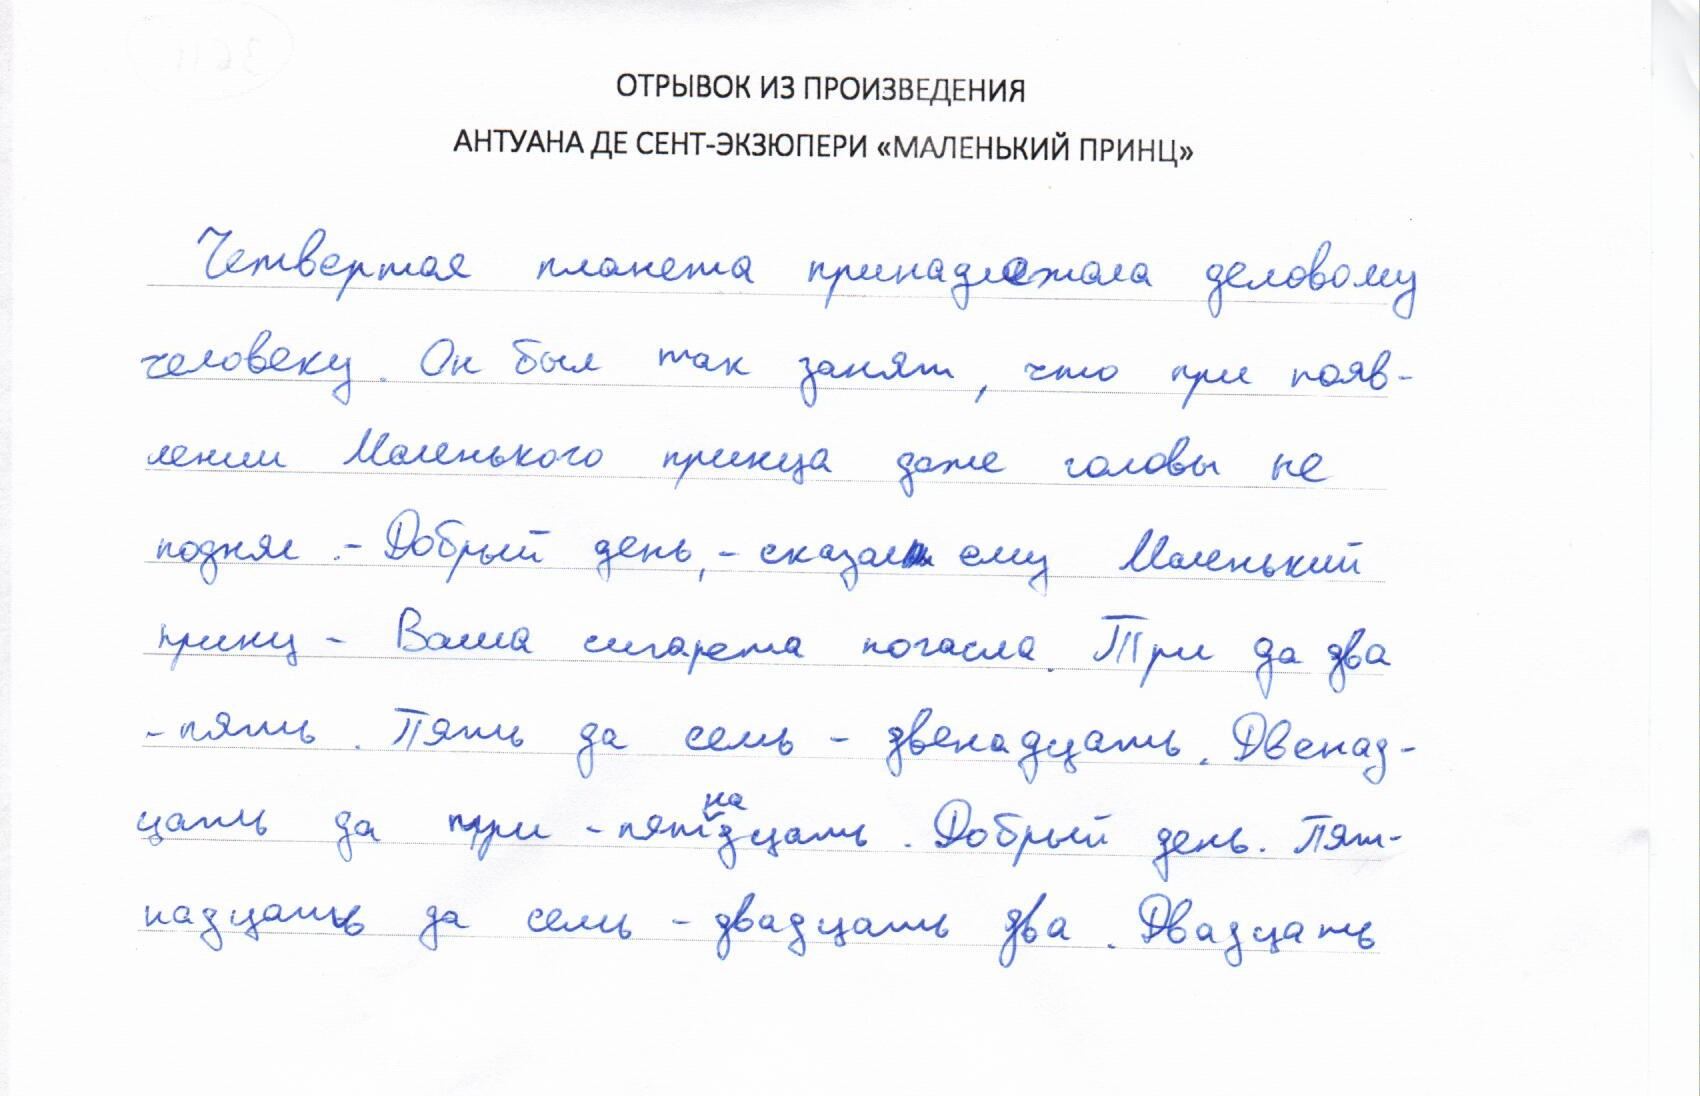 ОТРЫВОК ИЗ ПРОИЗВЕДЕНИЯ
АНТУАНА ДЕ СЕНТ-ЭКЗЮПЕРИ «МАЛЕНЬКИЙ ПРИНЦ»
Четвертая планета принадлежала деловому
человеку. Он был так занят, что при появ-
лении Маленького принца даже головы не
поднял. - Добрый день, - сказал ему Маленький
принц - Ваша сигарета погасла. Три да два
- пять. Пять да семь - двенадцать. Двенад-
цать да три - пятнадцать. Добрый день. Пят-
надцать да семь - двадцать два. Двадцать